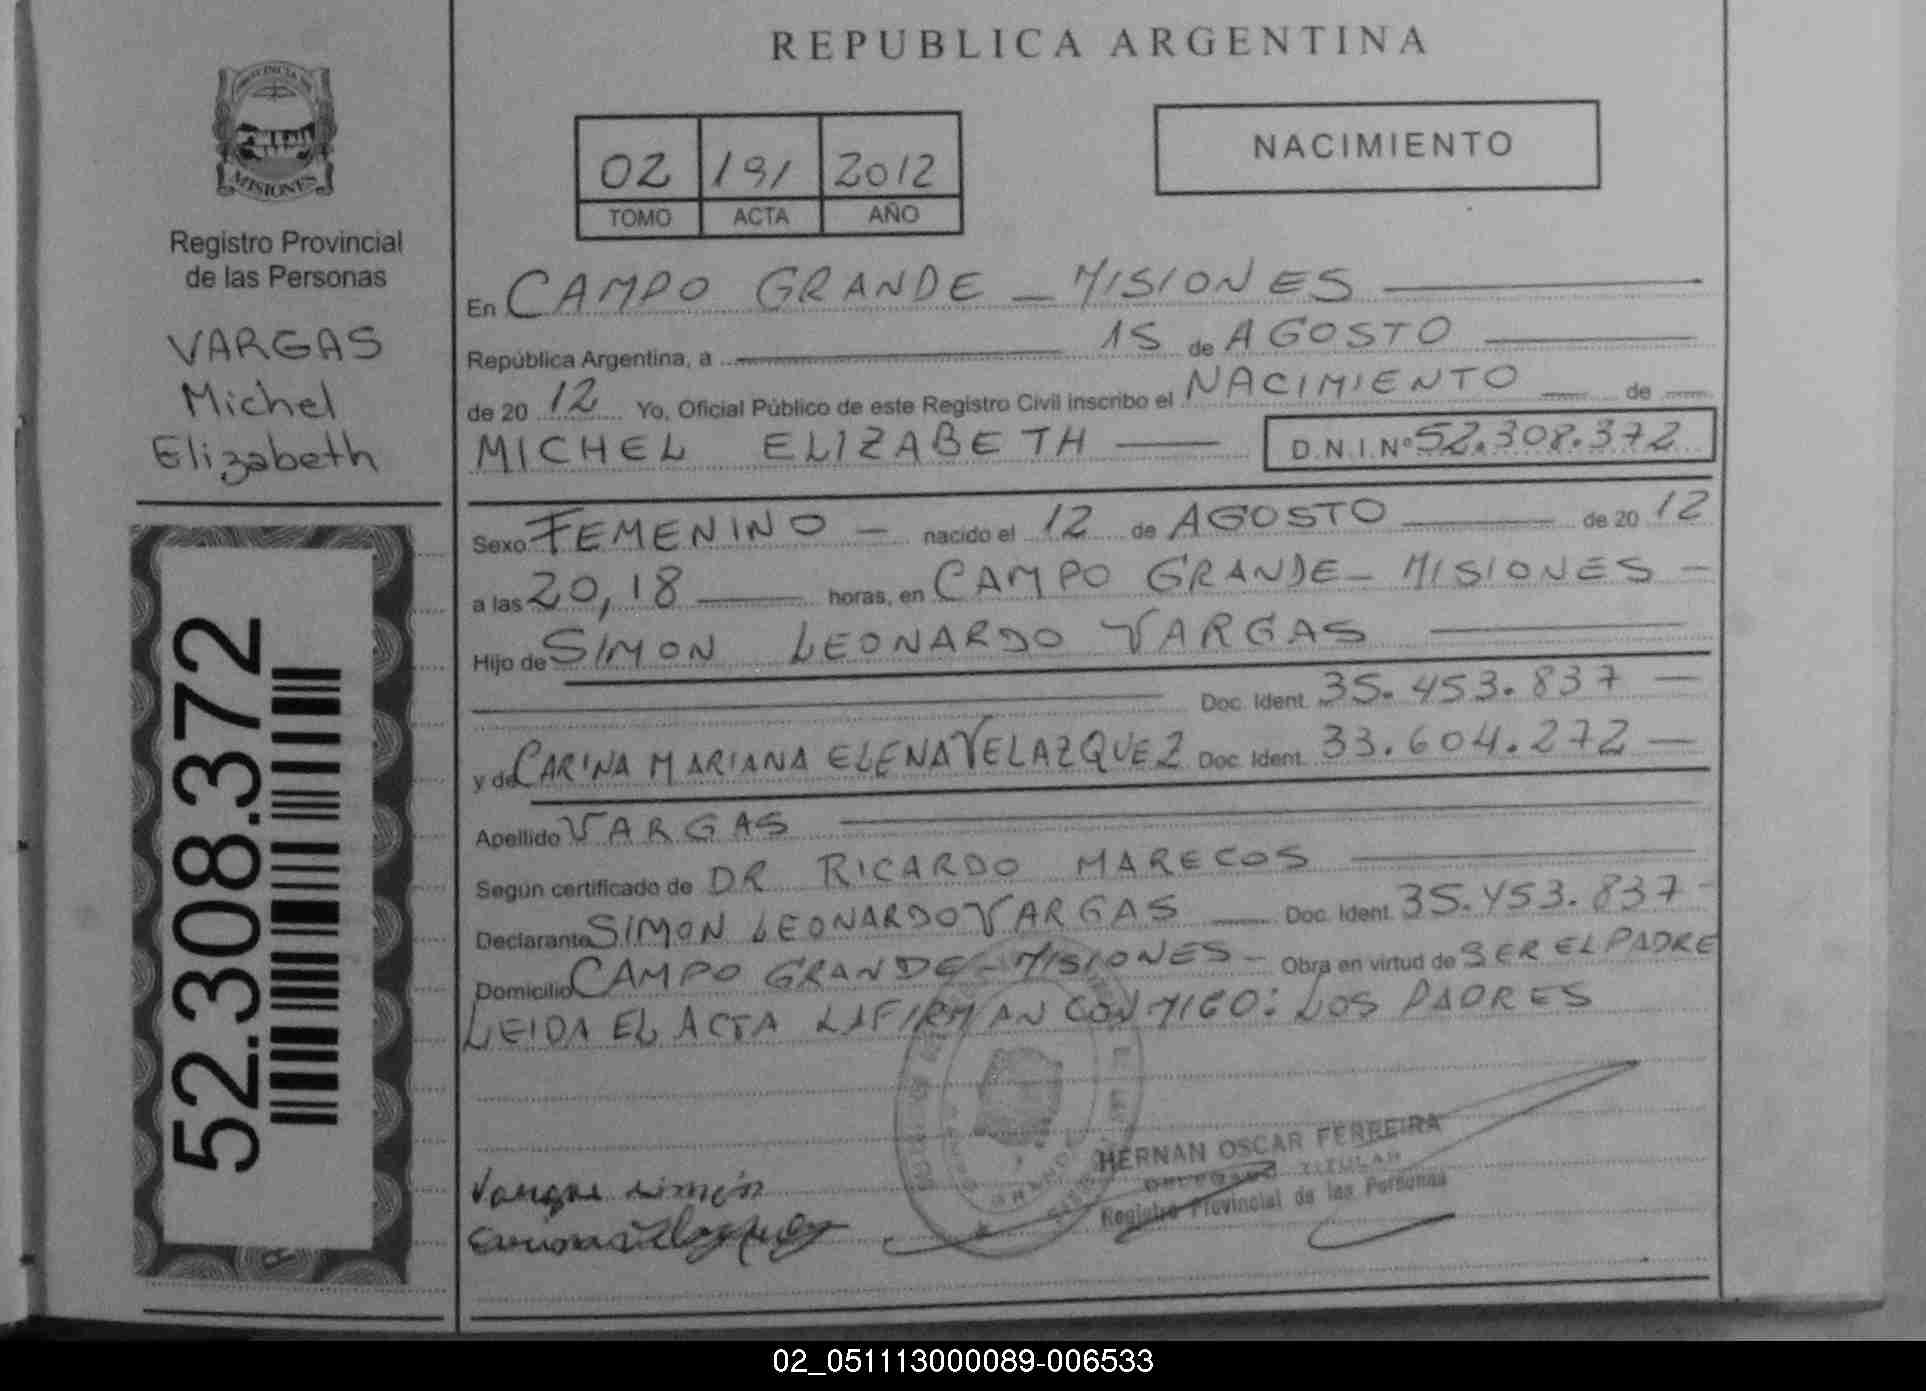 REPUBLICA ARGENTINA
PROVINCIA DE
MISIONES
Registro Provincial
de las Personas
VARGAS
Michel
Elizabeth
52.308.372
02 191 2012
TOMO ACTA AÑO
NACIMIENTO
En CAMPO GRANDE - MISIONES
República Argentina, a 15 de AGOSTO
de 20 12 Yo, Oficial Público de este Registro Civil inscribo el NACIMIENTO de
MICHEL ELIZABETH D.N.I.Nº 52.308.372
Sexo FEMENINO - nacido el 12 de AGOSTO de 20 12
a las 20,18 horas, en CAMPO GRANDE - MISIONES -
Hijo de SIMON LEONARDO VARGAS
Doc. Ident. 35.453.837
y de CARINA MARIANA ELENA VELAZQUEZ Doc. Ident. 33.604.272
Apellido VARGAS
Según certificado de DR RICARDO MARECOS
Declarante SIMON LEONARDO VARGAS Doc. Ident. 35.453.837
Domicilio CAMPO GRANDE - MISIONES - Obra en virtud de SER EL PADRE
LEIDA EL ACTA LA FIRMAN CONMIGO: LOS PADRES
Vargas simón
HERNAN OSCAR FERREIRA
DELEGADO TITULAR
Registro Provincial de las Personas
02_051113000089-006533